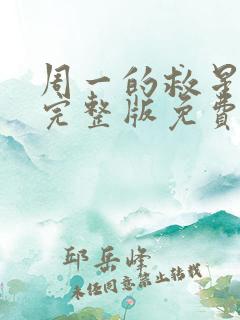 周一的救星
完整版免費
邱岳峰
未经同意禁止转载